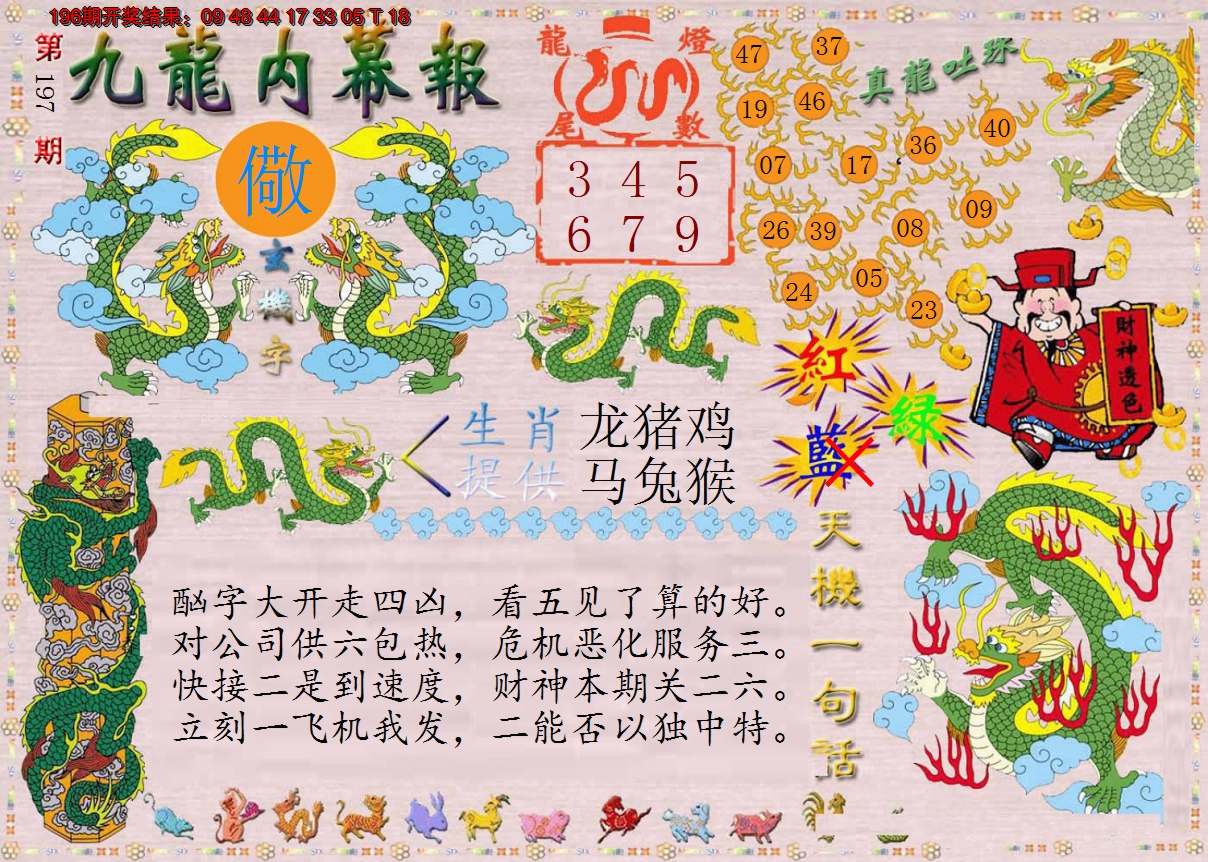 196期开奖结果：09 48 44 17 33 05 T 18
第197期
九龍内幕報
儆
玄機字
龍燈尾數
3 4 5
6 7 9
真龍吐珠
47 37
19 46
36 40
07 17
09
26 39 08
05
24 23
財神透色
紅
綠
藍
生肖提供
龙猪鸡
马兔猴
天機一句話
酗字大开走四凶，看五见了算的好。
对公司供六包热，危机恶化服务三。
快接二是到速度，财神本期关二六。
立刻一飞机我发，二能否以独中特。